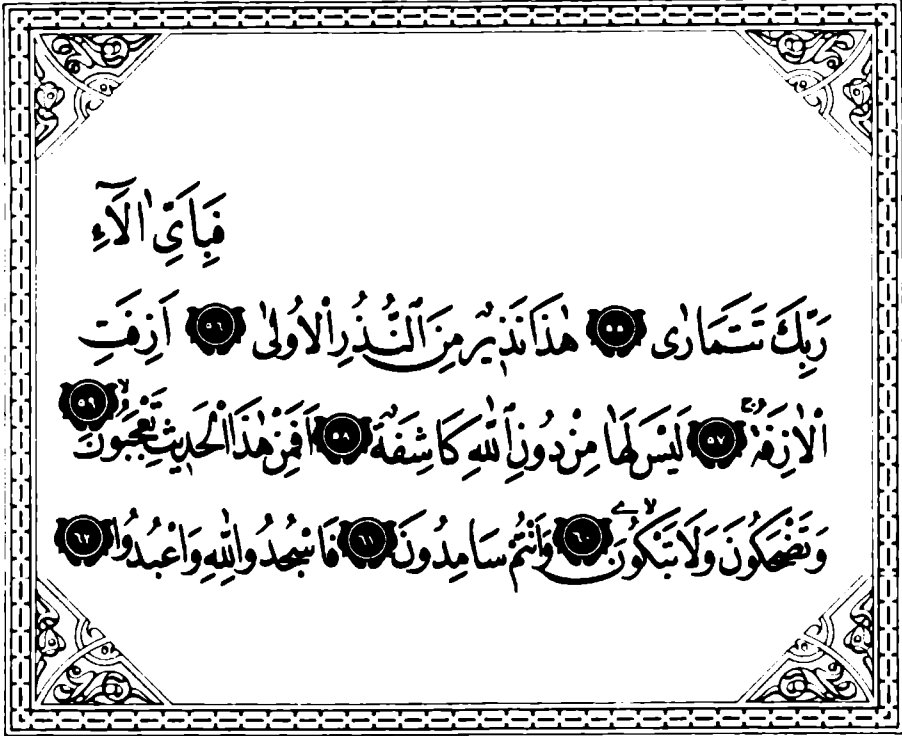 فَبِاَىِّ اٰلَٓاءِ
رَبِّكَ تَتَمَارٰى ﴿٥٥﴾ هٰذَا نَذٖيرٌ مِنَ النُّذُرِ الْاُولٰى ﴿٥٦﴾ اَزِفَتِ
الْاٰزِفَةُۚ ﴿٥٧﴾ لَيْسَ لَهَا مِنْ دُونِ اللّٰهِ كَاشِفَةٌ ﴿٥٨﴾ اَفَمِنْ هٰذَا الْحَدٖيثِ تَعْجَبُونَۙ ﴿٥٩﴾
وَتَضْحَكُونَ وَلَا تَبْكُونَۙ ﴿٦٠﴾ وَاَنْتُمْ سَامِدُونَ ﴿٦١﴾ فَاسْجُدُوا لِلّٰهِ وَاعْبُدُوا ﴿٦٢﴾